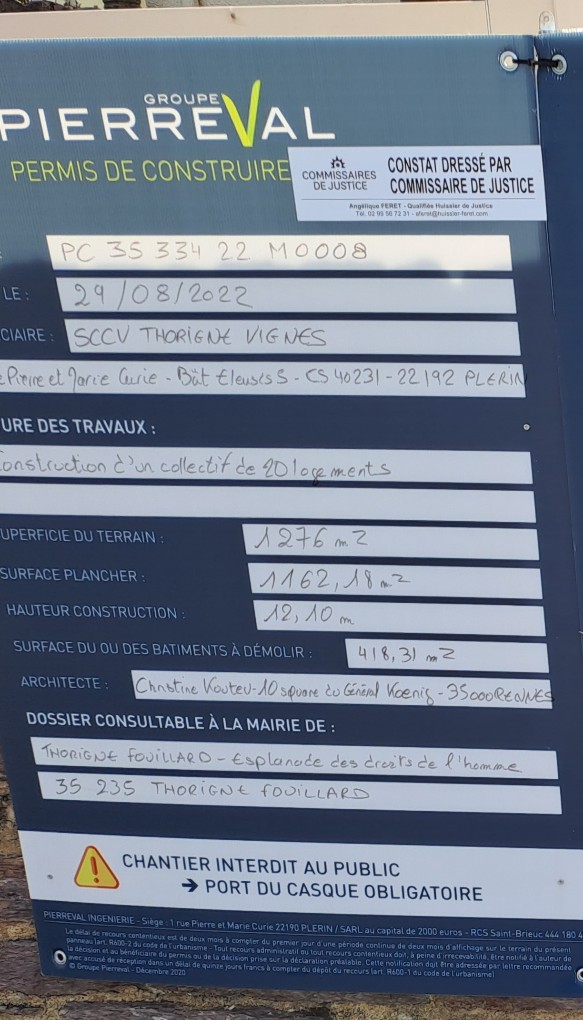 GROUPE
PIERREVAL
PERMIS DE CONSTRUIRE
COMMISSAIRES
DE JUSTICE
CONSTAT DRESSÉ PAR
COMMISSAIRE DE JUSTICE
Angélique FERET - Qualifiée Huissier de Justice
Tél. 02 99 56 72 31 - aferet@huissier-feret.com
PC 35 334 22 M0008
LE : 29/08/2022
CIAIRE : SCCV THORIGNE VIGNES
Pierre et Marie Curie - Bât Eleusis 5 - CS 40231 - 22192 PLERIN
URE DES TRAVAUX :
Construction d'un collectif de 20 logements
UPERFICIE DU TERRAIN : 1276 m2
SURFACE PLANCHER : 1162,18 m2
HAUTEUR CONSTRUCTION : 12,10 m
SURFACE DU OU DES BATIMENTS À DÉMOLIR : 418,31 m2
ARCHITECTE : Christine - 10 square du Général Koenig - 35000 RENNES
DOSSIER CONSULTABLE À LA MAIRIE DE :
THORIGNE FOUILLARD - Esplanade des droits de l'homme
35 235 THORIGNE FOUILLARD
CHANTIER INTERDIT AU PUBLIC
→ PORT DU CASQUE OBLIGATOIRE
PIERREVAL INGENIERIE - Siège : 1 rue Pierre et Marie Curie 22190 PLERIN / SARL au capital de 2000 euros - RCS Saint-Brieuc 444 180 4
Le délai de recours contentieux est de deux mois à compter du premier jour d'une période continue de deux mois d'affichage sur le terrain du présent
panneau (art. R600-2 du code de l'urbanisme). Tout recours administratif ou tout recours contentieux doit, à peine d'irrecevabilité, être notifié à l'auteur de
la décision et au bénéficiaire du permis ou de la décision prise sur la déclaration préalable. Cette notification doit être adressée par lettre recommandée
avec accusé de réception dans un délai de quinze jours francs à compter du dépôt du recours (art. R600-1 du code de l'urbanisme)
© Groupe Pierreval - Décembre 2020